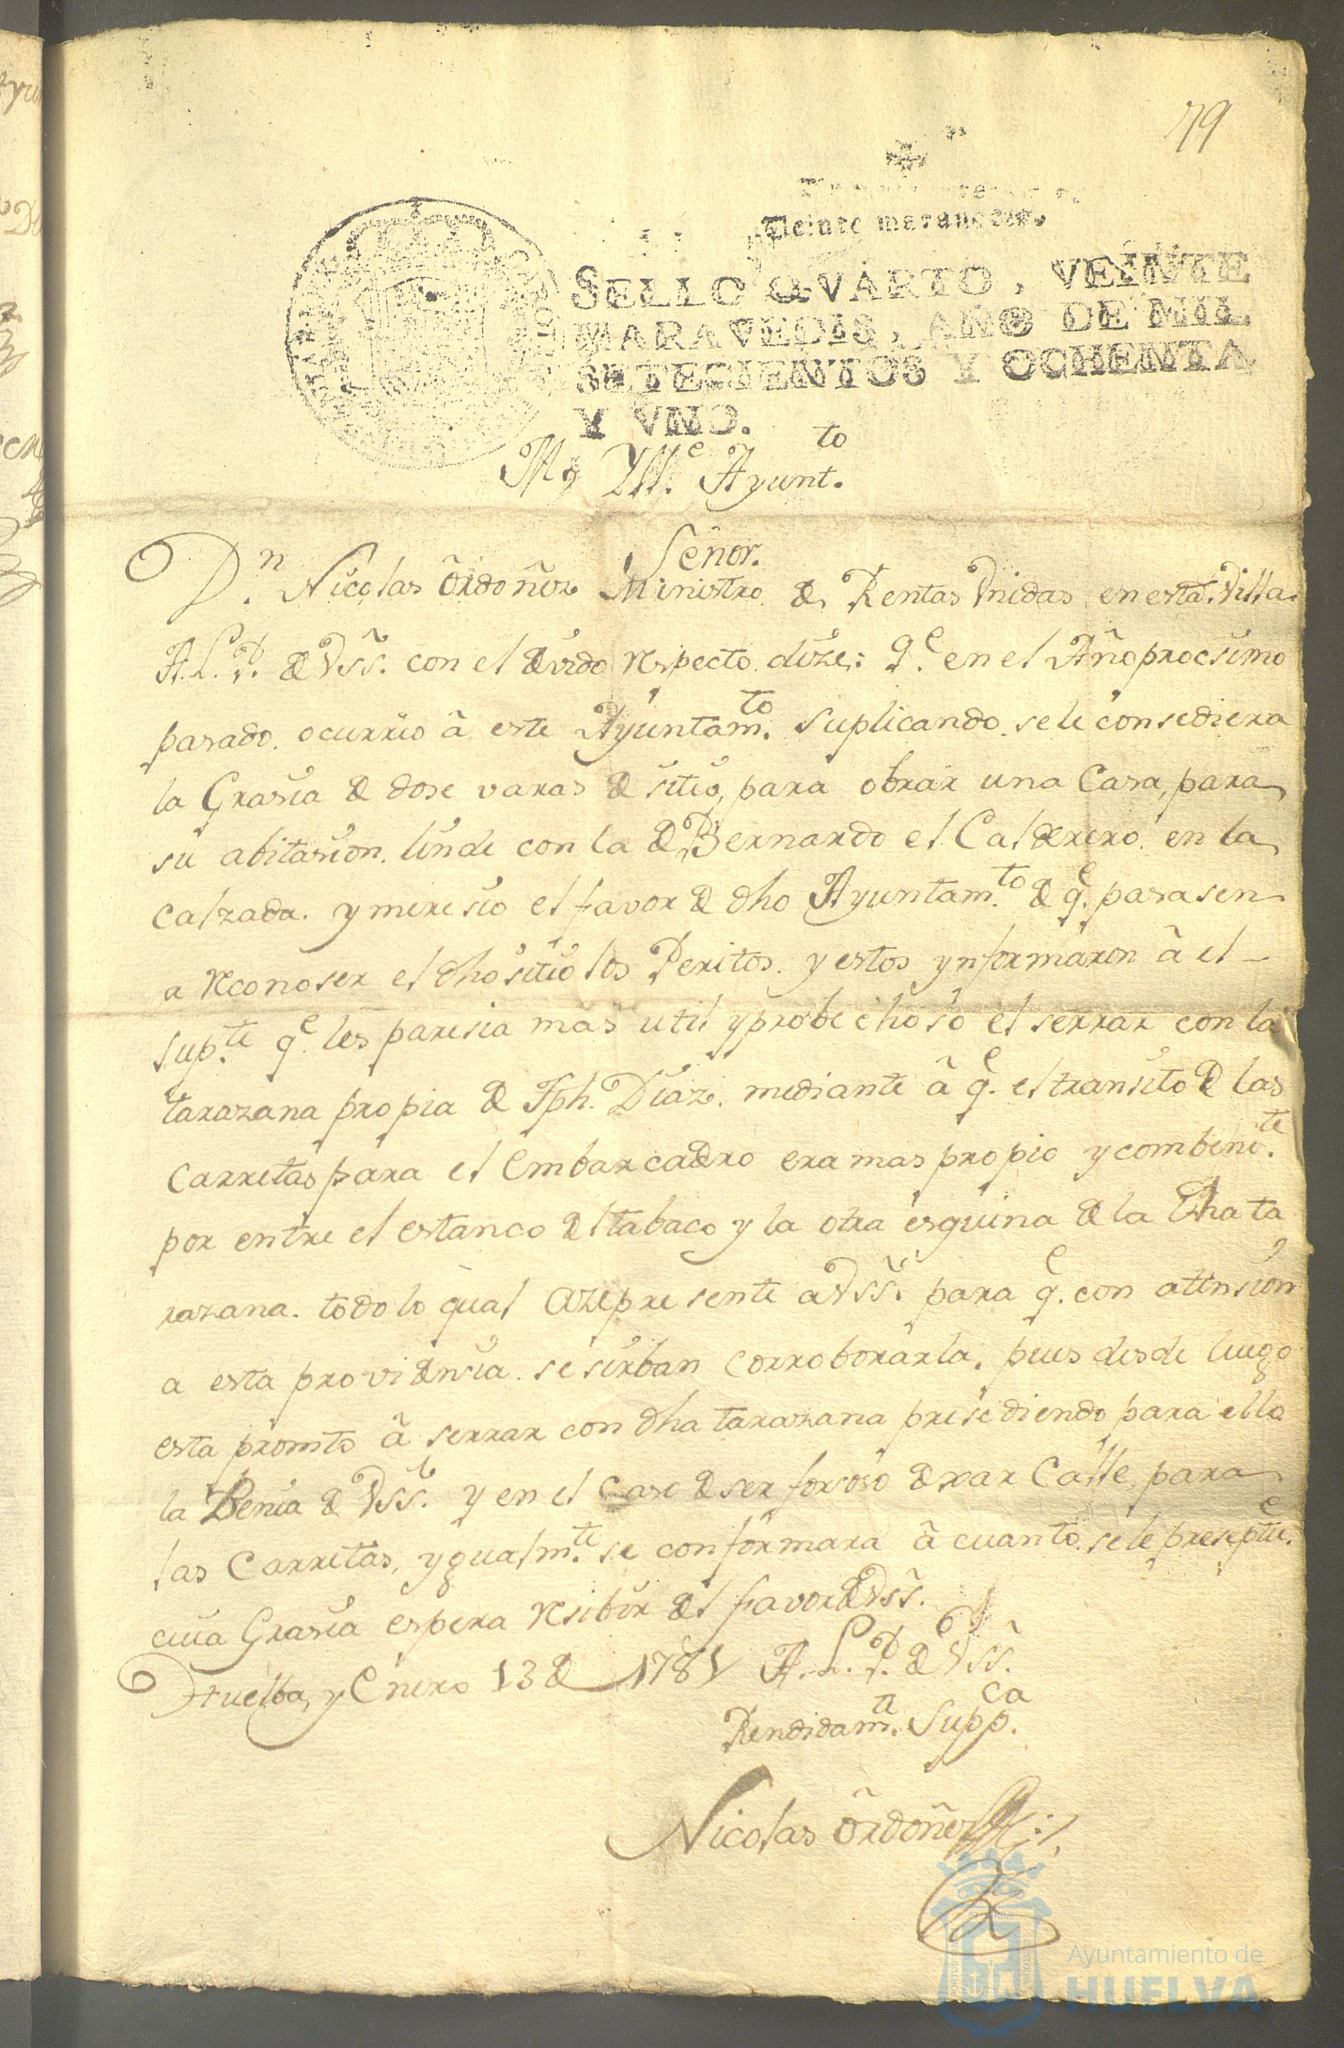 79
Veinte maravedis.
SELLO QVARTO, VEINTE
MARAVEDIS, AÑO DE MIL
SETECIENTOS Y OCHENTA
Y VNO.
M.y Yll.e Ayunt.to
Señor.
D.n Nicolas Ordoñez Ministro de Rentas Vnidas en esta Villa
A. L. P. de VSS. con el devido respecto dize: q.e en el Año procsimo
pasado ocurrio â este Ayuntam.to suplicando se le consediera
la Grasia de dose varas de sitio, para obrar una Casa, para
su abitasion linde con la de Bernardo el Calderero en la
Calzada. y meresio el favor de dho Ayuntam.to de q.e pasasen
a reconoser el dho sitio los Peritos. y estos ynformaron â el
sup.te q.e les paresia mas util y probechoso el serrar con la
tarazana propia de Jph. Diaz. mediante â q.e el transito de las
Carretas para el Embarcadro era mas propio y combeni.te
por entre el estanco del tabaco y la otra esquina de la dha ta
razana. todo lo qual aze presente a VSS. para q.e con atension
a esta providensia se sirban corroborarla. pues desde luego
esta promto â serrar con dha tarazana presediendo para ello
la Benia de VSS. y en el Caso de ser forsoso dexar Calle para
las Carretas, ygualm.te se conformara â cuanto se le preseptue.
cuia Grasia espera resibir del favor de VSS.
Huelba, y Enero 13 de 1781 A. L. P. de VSS.
Rendidam.te Supp.ca
Nicolas Ordoñez
Ayuntamiento de
HUELVA